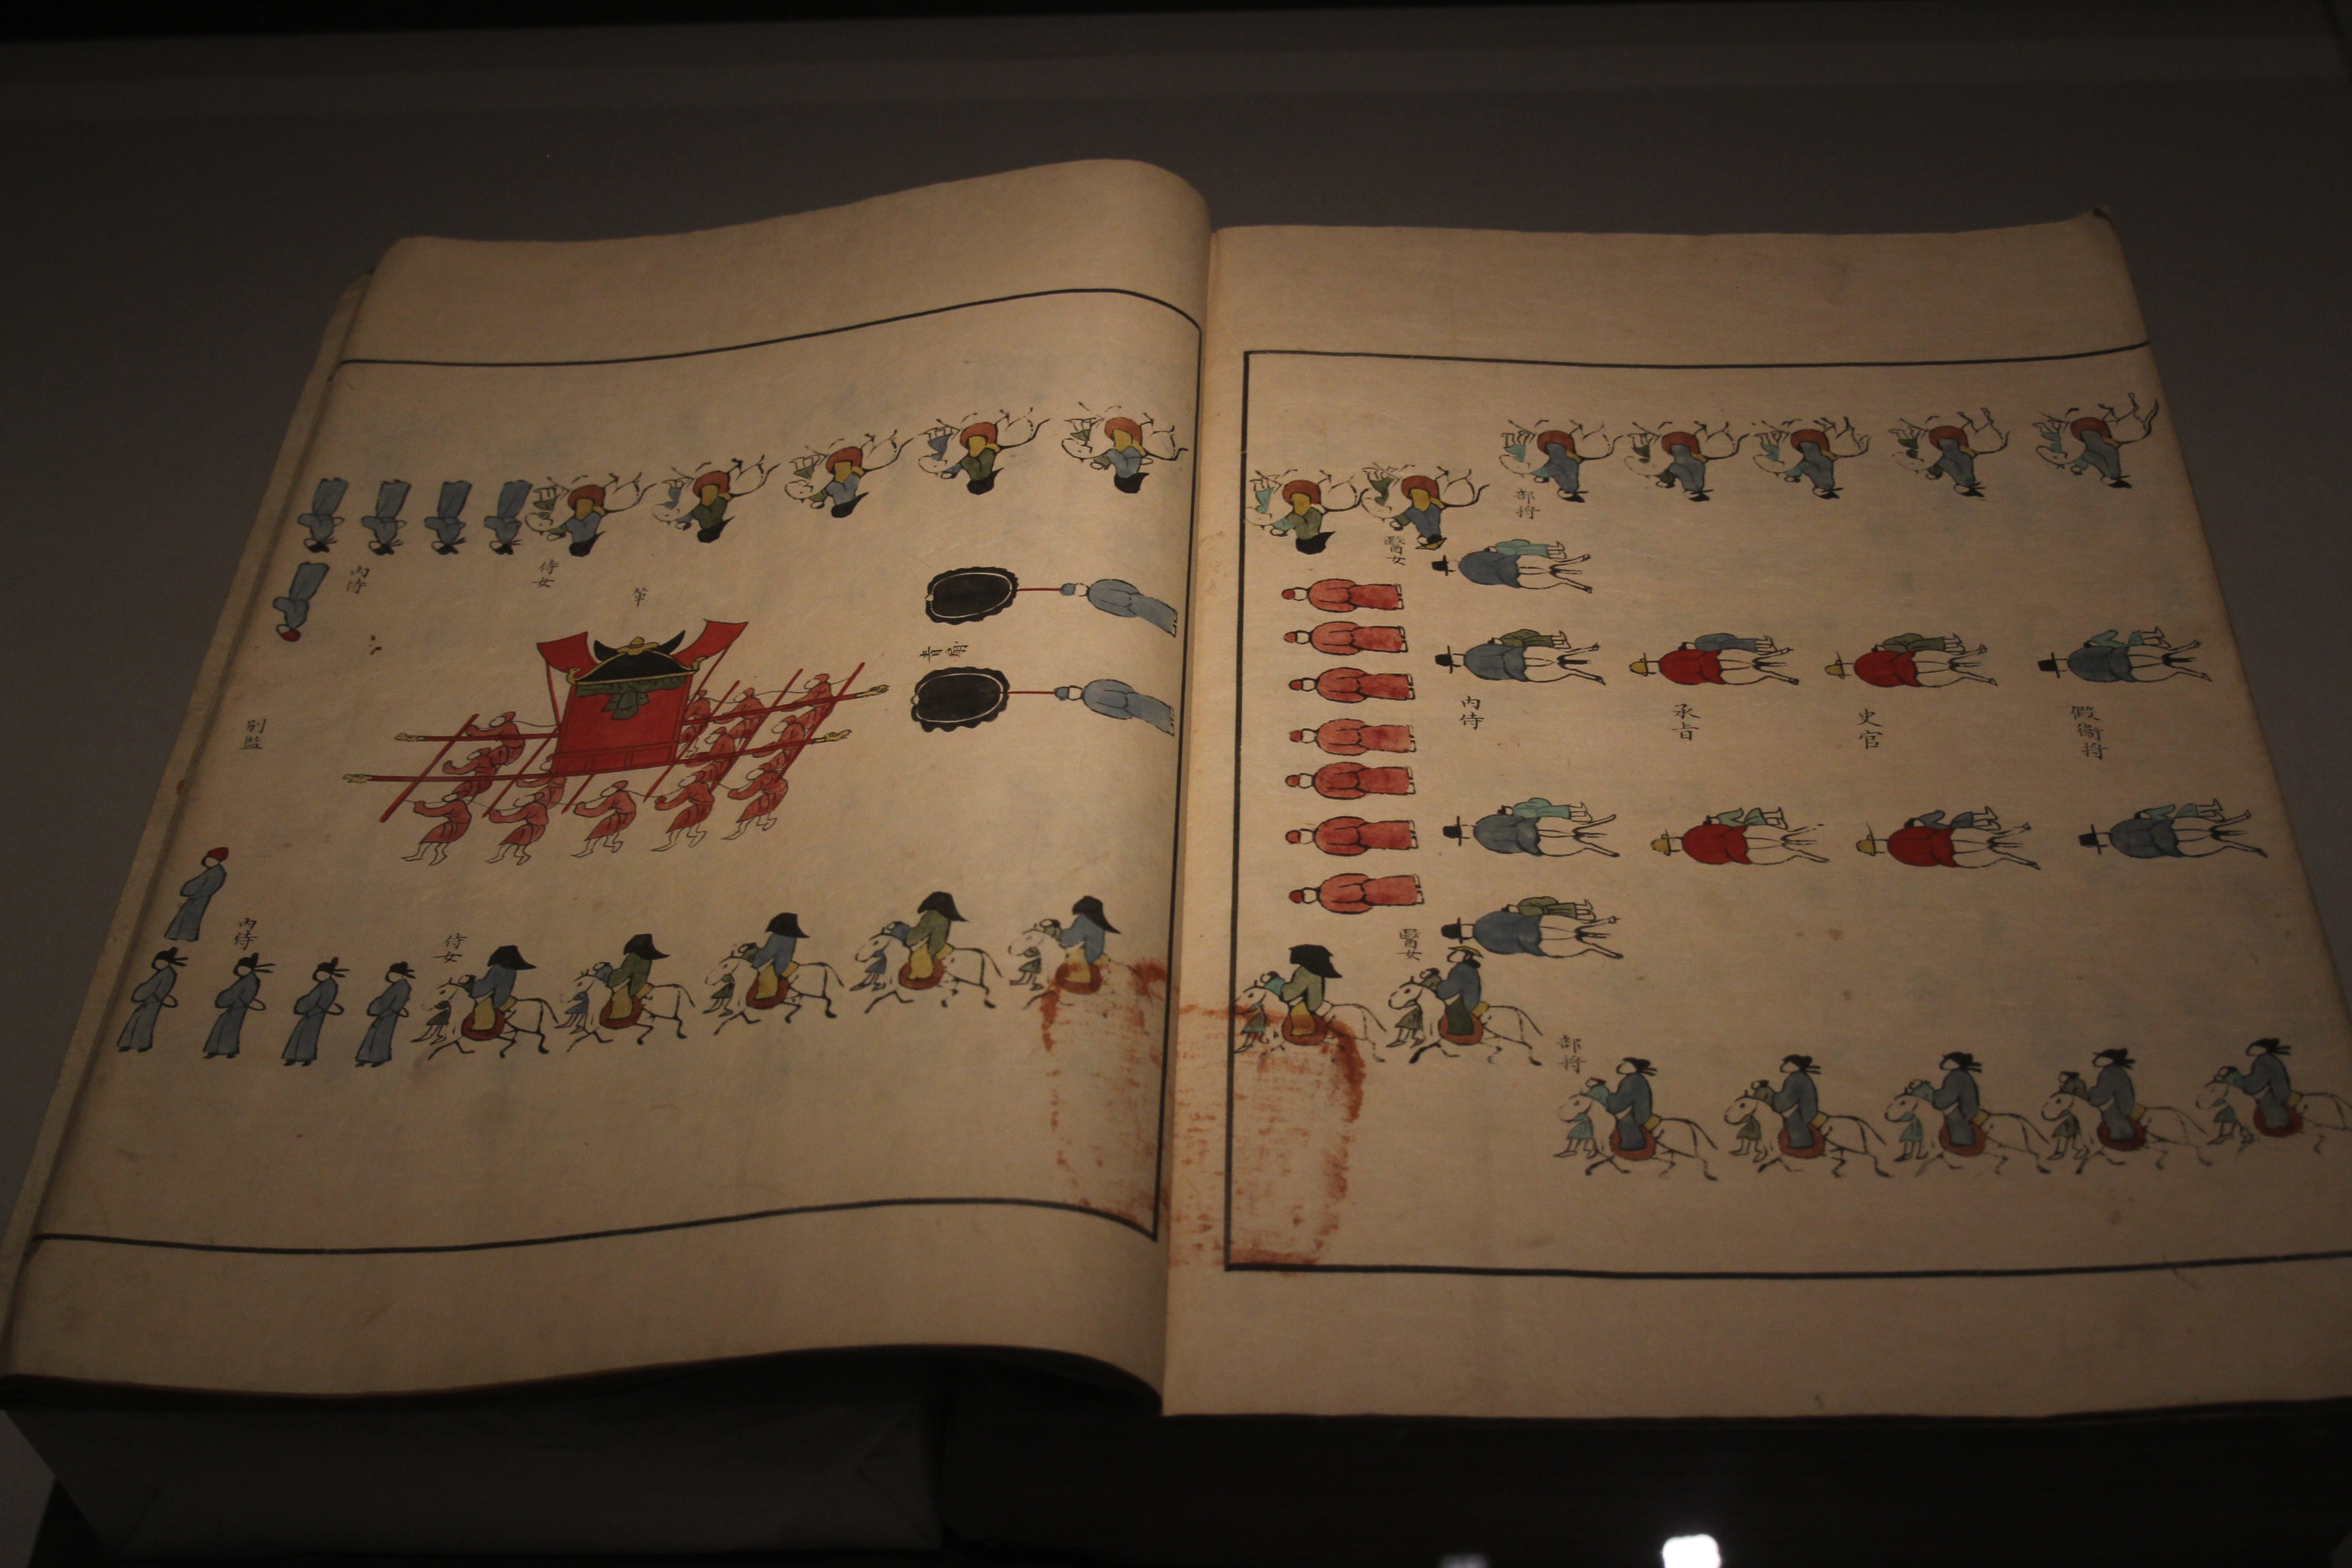 假衛将
史官
承旨
內侍
部将
醫女
醫女
部将
青扇
輦
侍女
內侍
別監
侍女
內侍